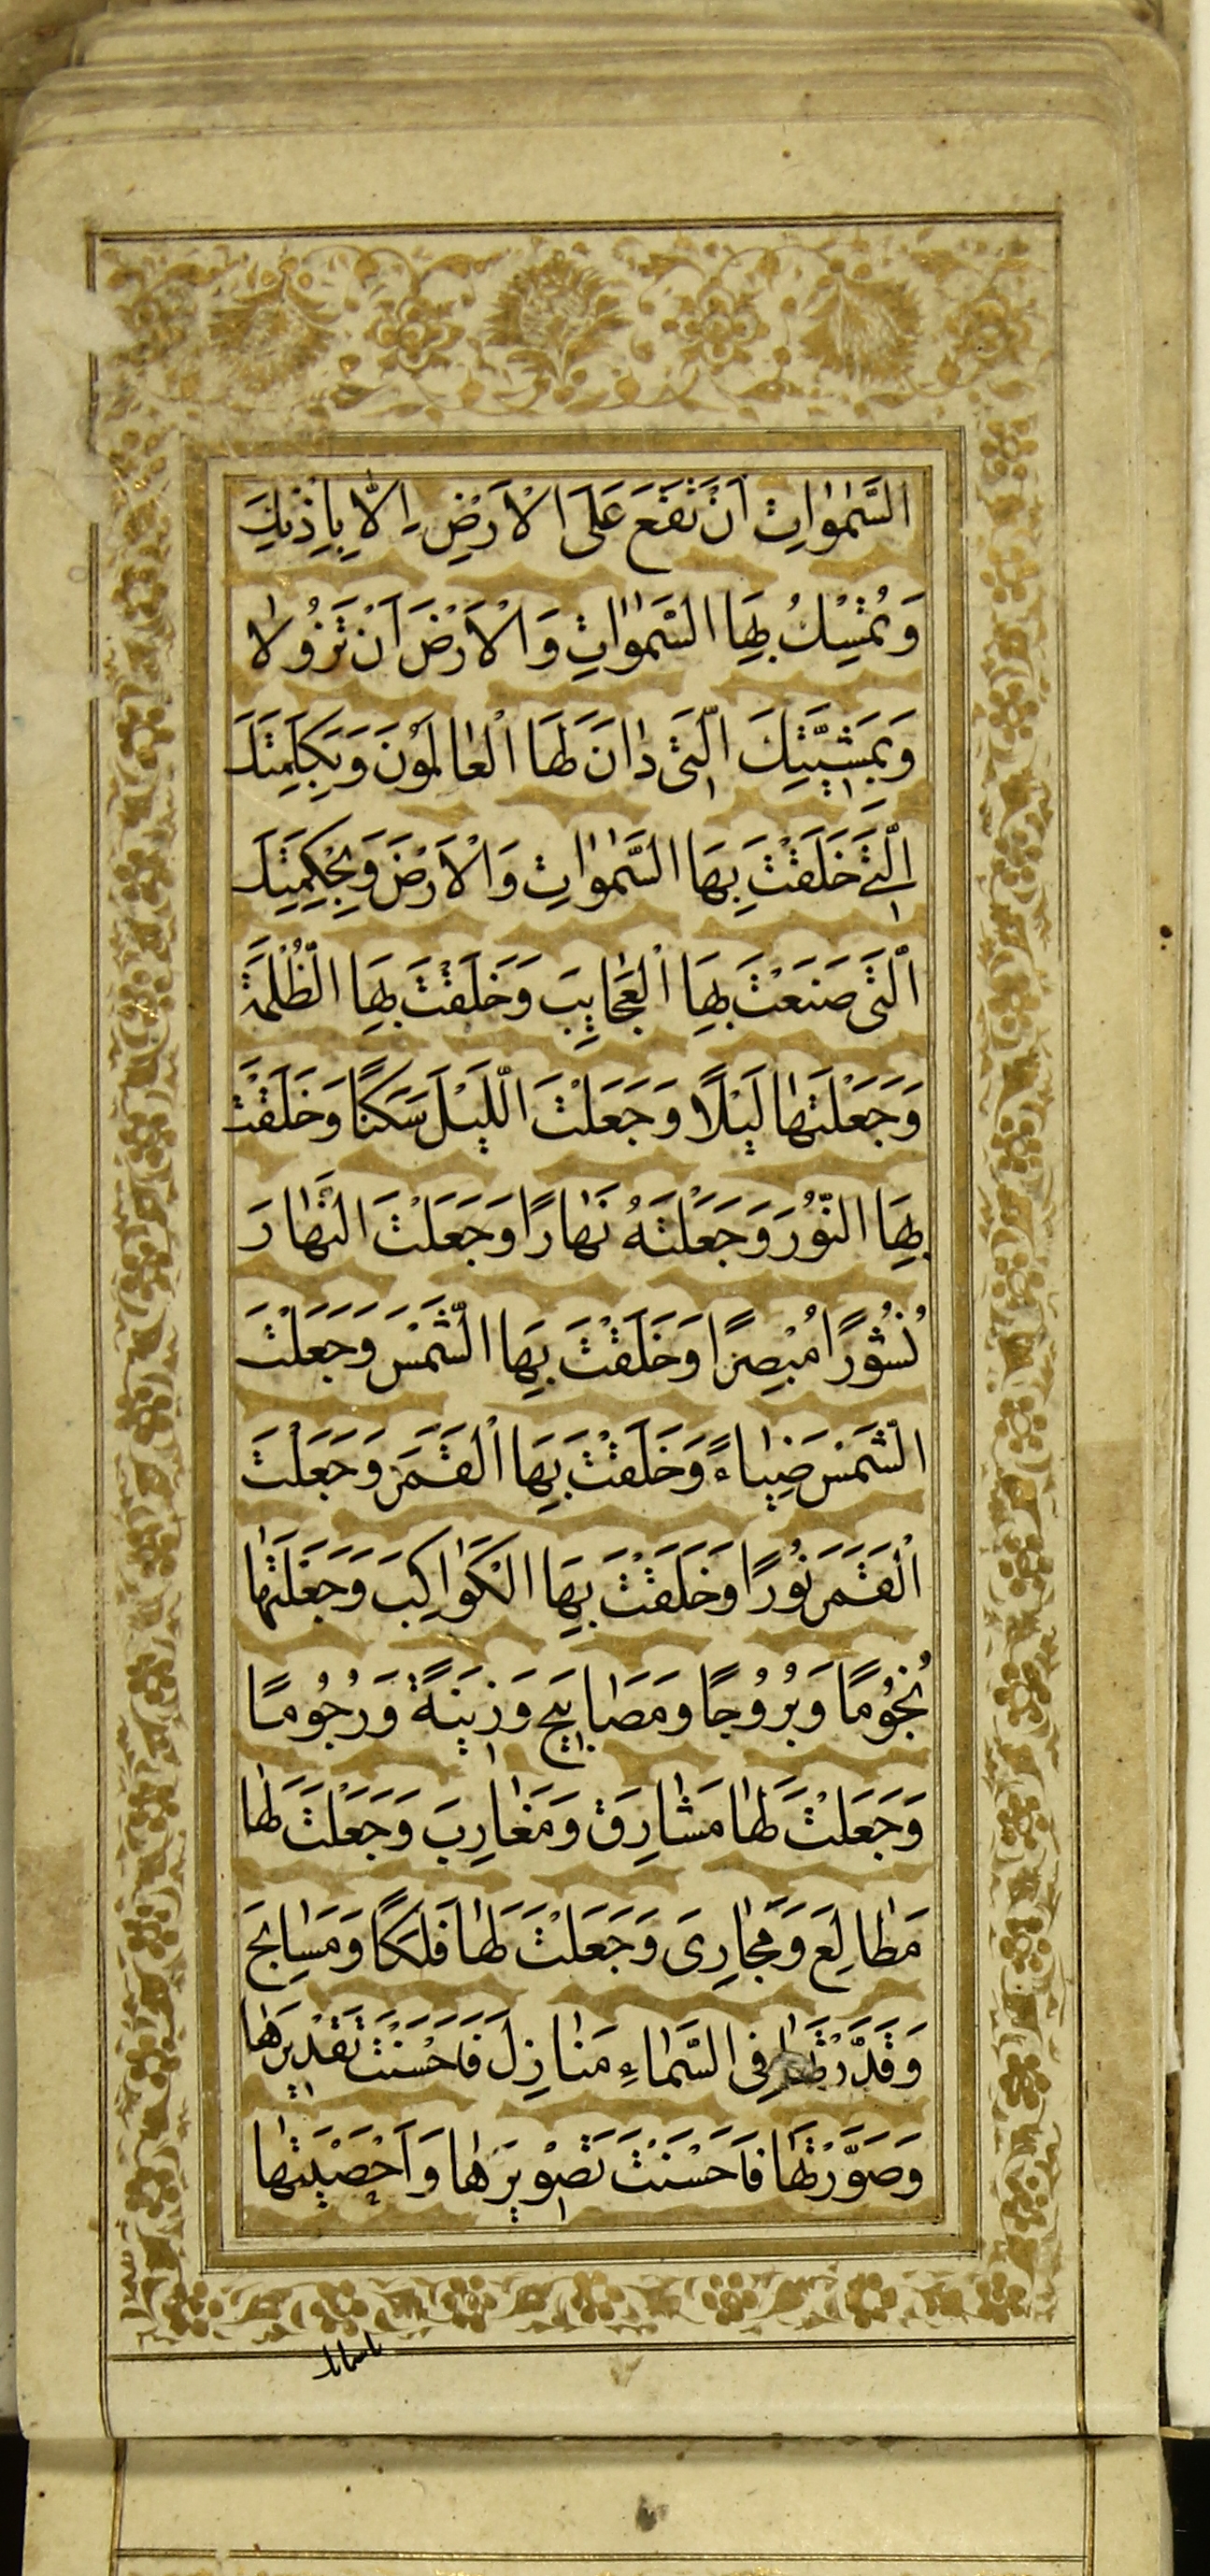 السَّمٰوٰاتِ اَنْ تَقَعَ عَلَى الْاَرْضِ اِلّٰا بِاِذْنِكَ
وَتُمْسِكُ بِهَا السَّمٰوٰاتِ وَالْاَرْضَ اَنْ تَزُولٰا
وَبِمَشِيَّتِكَ الَّتٖى دٰانَ لَهَا الْعٰالَمُونَ وَبِكَلِمَتِكَ
الَّتٖى خَلَقْتَ بِهَا السَّمٰوٰاتِ وَالْاَرْضَ وَبِحِكْمَتِكَ
الَّتٖى صَنَعْتَ بِهَا الْعَجٰايِبَ وَخَلَقْتَ بِهَا الظُّلْمَةَ
وَجَعَلْتَهٰا لَيْلًا وَجَعَلْتَ اللَّيْلَ سَكَنًا وَخَلَقْتَ
بِهَا النُّورَ وَجَعَلْتَهُ نَهٰارًا وَجَعَلْتَ النَّهٰارَ
نُشُورًا مُبْصِرًا وَخَلَقْتَ بِهَا الشَّمْسَ وَجَعَلْتَ
الشَّمْسَ ضِيٰاءً وَخَلَقْتَ بِهَا الْقَمَرَ وَجَعَلْتَ
الْقَمَرَ نُورًا وَخَلَقْتَ بِهَا الْكَوٰاكِبَ وَجَعَلْتَهٰا
نُجُومًا وَبُرُوجًا وَمَصٰابٖيحَ وَزٖينَةً وَرُجُومًا
وَجَعَلْتَ لَهٰا مَشٰارِقَ وَمَغٰارِبَ وَجَعَلْتَ لَهٰا
مَطٰالِعَ وَمَجٰارِىَ وَجَعَلْتَ لَهٰا فَلَكًا وَمَسٰابِحَ
وَقَدَّرْتَهٰا فِى السَّمٰاءِ مَنٰازِلَ فَاَحْسَنْتَ تَقْدٖيرَهٰا
وَصَوَّرْتَهٰا فَاَحْسَنْتَ تَصْوٖيرَهٰا وَاَحْصَيْتَهٰا
باسمائك